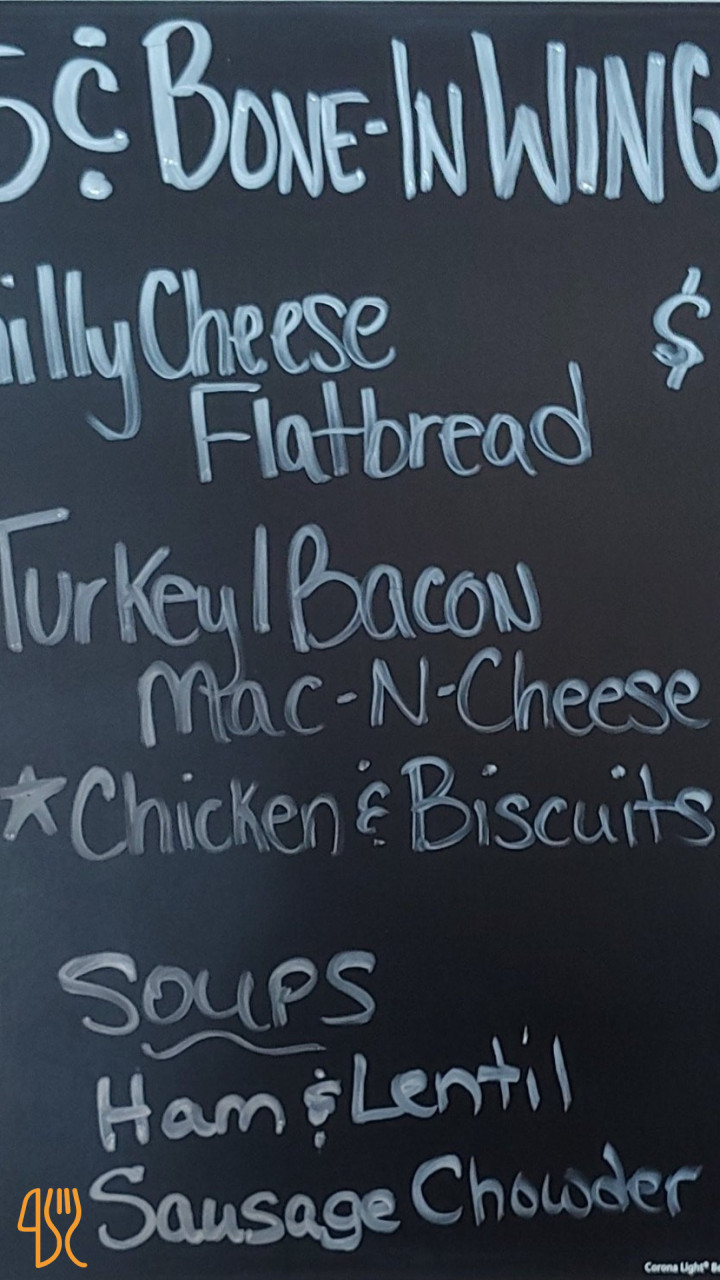 5¢ BONE-IN WING
illy Cheese $
Flatbread
Turkey/Bacon
Mac-N-Cheese
★Chicken & Biscuits
SOUPS
Ham & Lentil
Sausage Chowder
Corona Light® Be